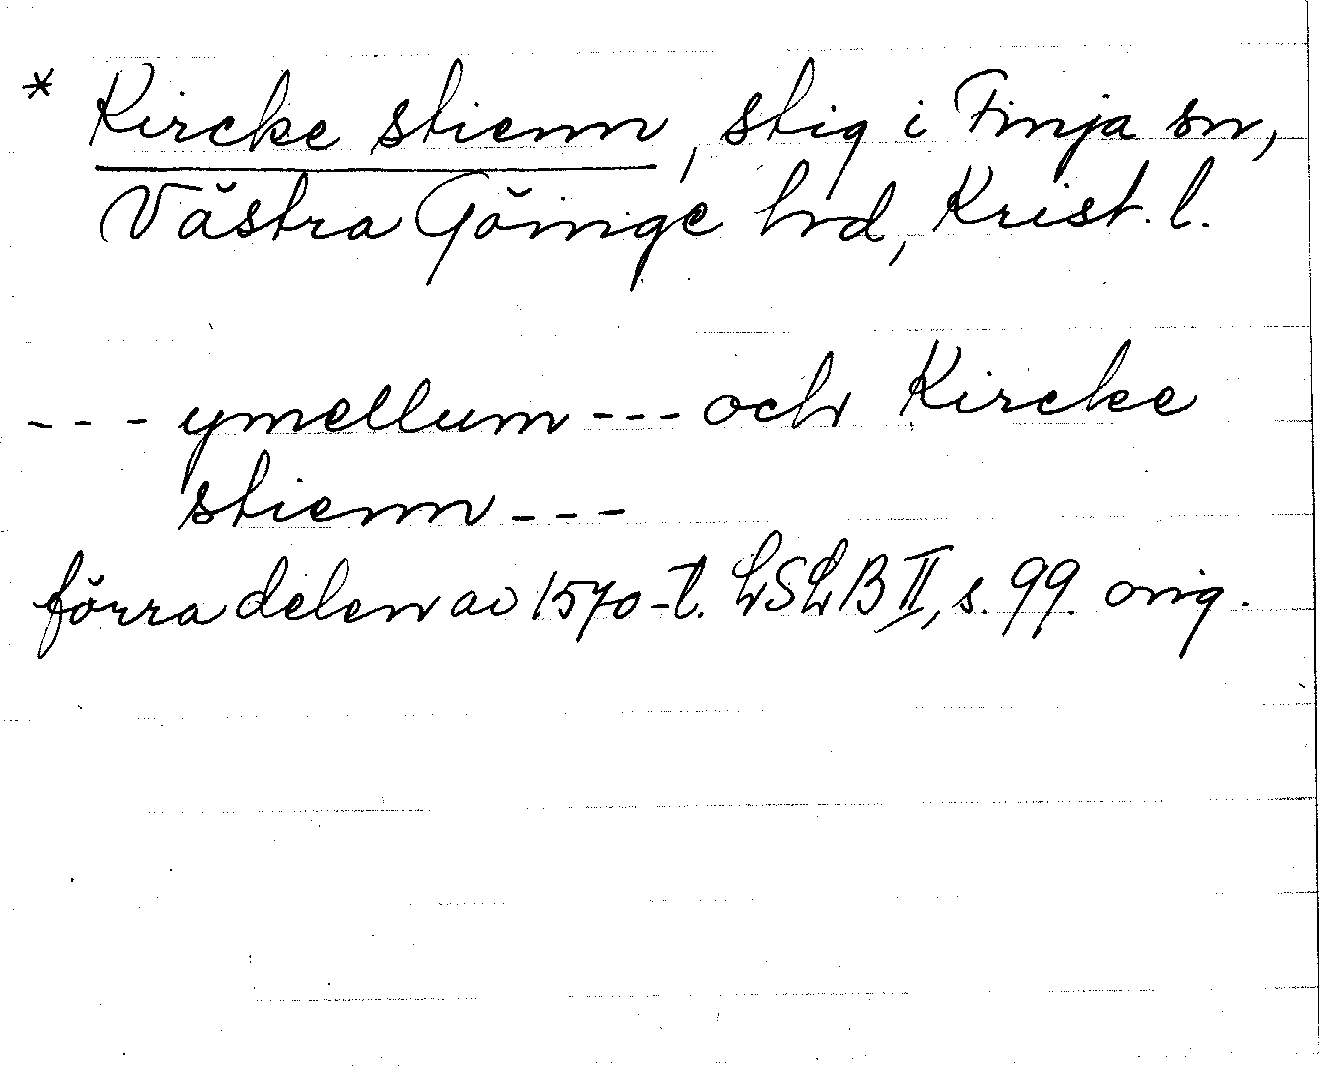 * Kircke stienn, stig i Finja sn,
Västra Göinge hd, Krist. l.
--- ymellum --- och Kircke
stienn ---
förra delen av 1570-t. LSLB II, s. 99 orig.